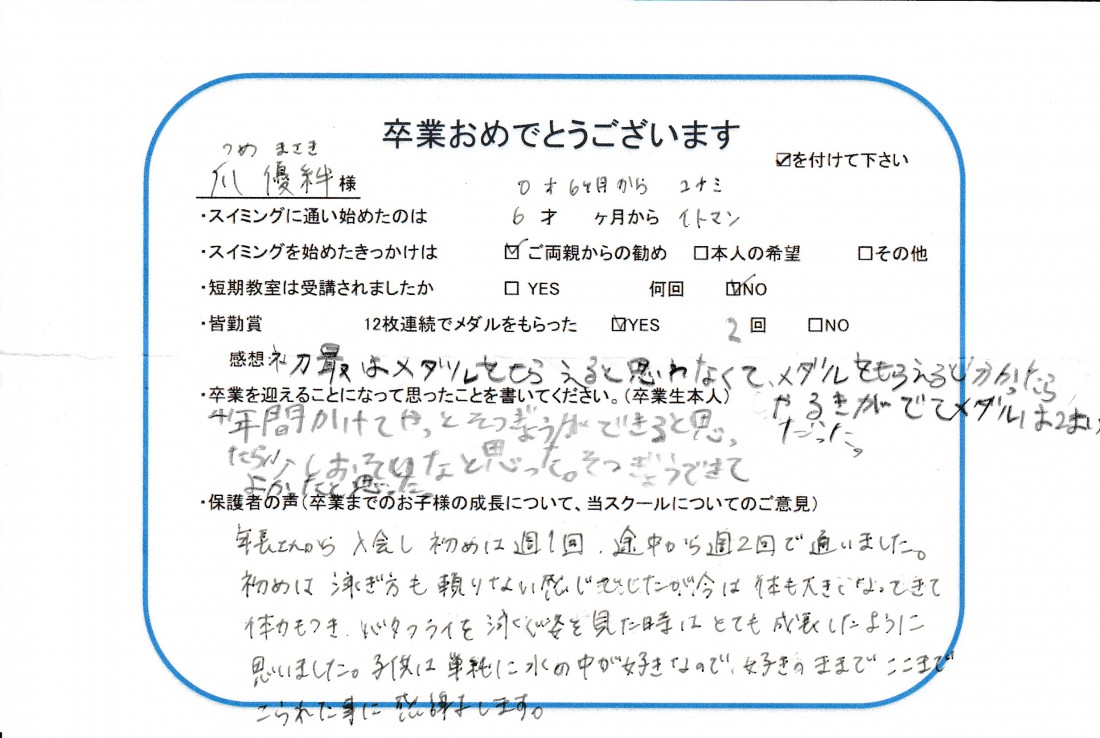 卒業おめでとうございます
☑を付けて下さい
つめ まさき
爪 優絆 様
0才6ヶ月から コナミ
・スイミングに通い始めたのは 6 才 ヶ月から イトマン
・スイミングを始めたきっかけは ☑ご両親からの勧め □本人の希望 □その他
・短期教室は受講されましたか □ YES 何回 ☑NO
・皆勤賞 12枚連続でメダルをもらった ☑YES 2 回 □NO
感想 最初はメダルをもらえると思わなくて、メダルをもらえると分かったら
やるきがでてメダルは2まい
だった。
・卒業を迎えることになって思ったことを書いてください。(卒業生本人)
4年間かけてやっとそつぎょうができると思っ
たら少しおそいなと思った。そつぎょうできて
よかったと思った。
・保護者の声(卒業までのお子様の成長について、当スクールについてのご意見)
年長さんから入会し初めは週1回、途中から週2回で通いました。
初めは泳ぎ方も頼りない感じでしたが今は体も大きくなってきて
体力もつき、バタフライを泳ぐ姿を見た時はとても成長したように
思いました。子供は単純に水の中が好きなので、好きのままでここまで
こられた事に感謝します。